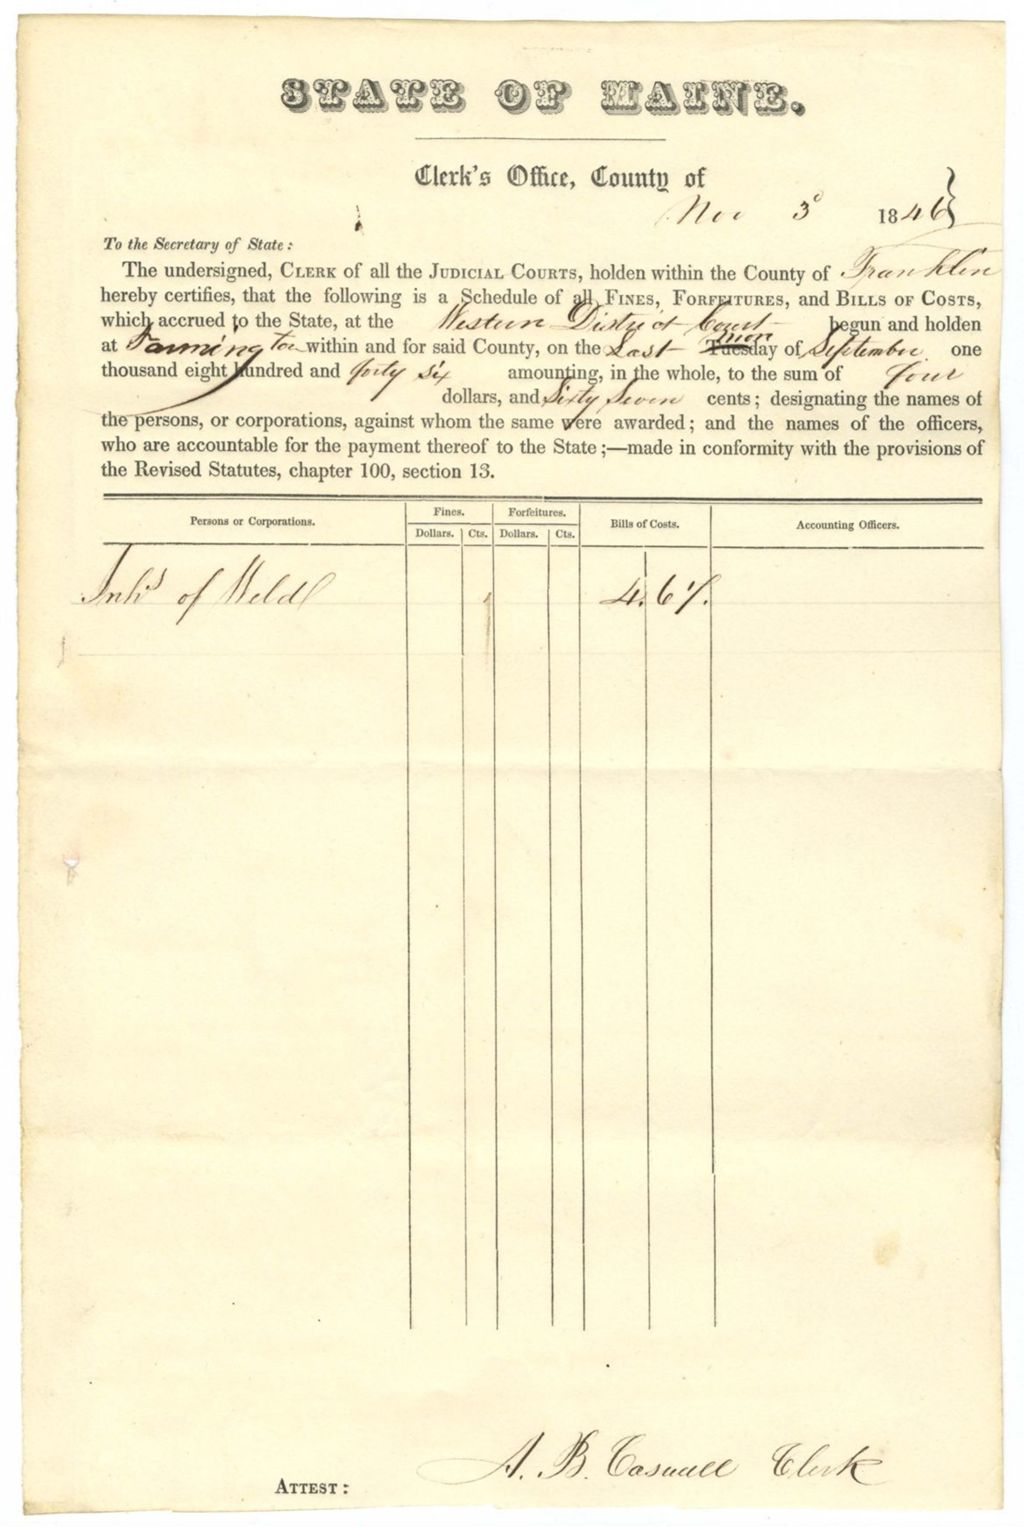 STATE OF MAINE.
Clerk's Office, County of
Nov 3d 1846 }
To the Secretary of State:
The undersigned, CLERK of all the JUDICIAL COURTS, holden within the County of Franklin
hereby certifies, that the following is a Schedule of all FINES, FORFEITURES, and BILLS OF COSTS,
which accrued to the State, at the Western District Court begun and holden
at Farmington within and for said County, on the Last Tuesday Mon of September one
thousand eight hundred and forty six amounting, in the whole, to the sum of four
dollars, and Sixty Seven cents; designating the names of
the persons, or corporations, against whom the same were awarded; and the names of the officers,
who are accountable for the payment thereof to the State;—made in conformity with the provisions of
the Revised Statutes, chapter 100, section 13.
Persons or Corporations. Fines. Forfeitures. Bills of Costs. Accounting Officers.
Dollars. Cts. Dollars. Cts.
Inhs of Weld 4.67.
A. B. Caswell Clerk
ATTEST: